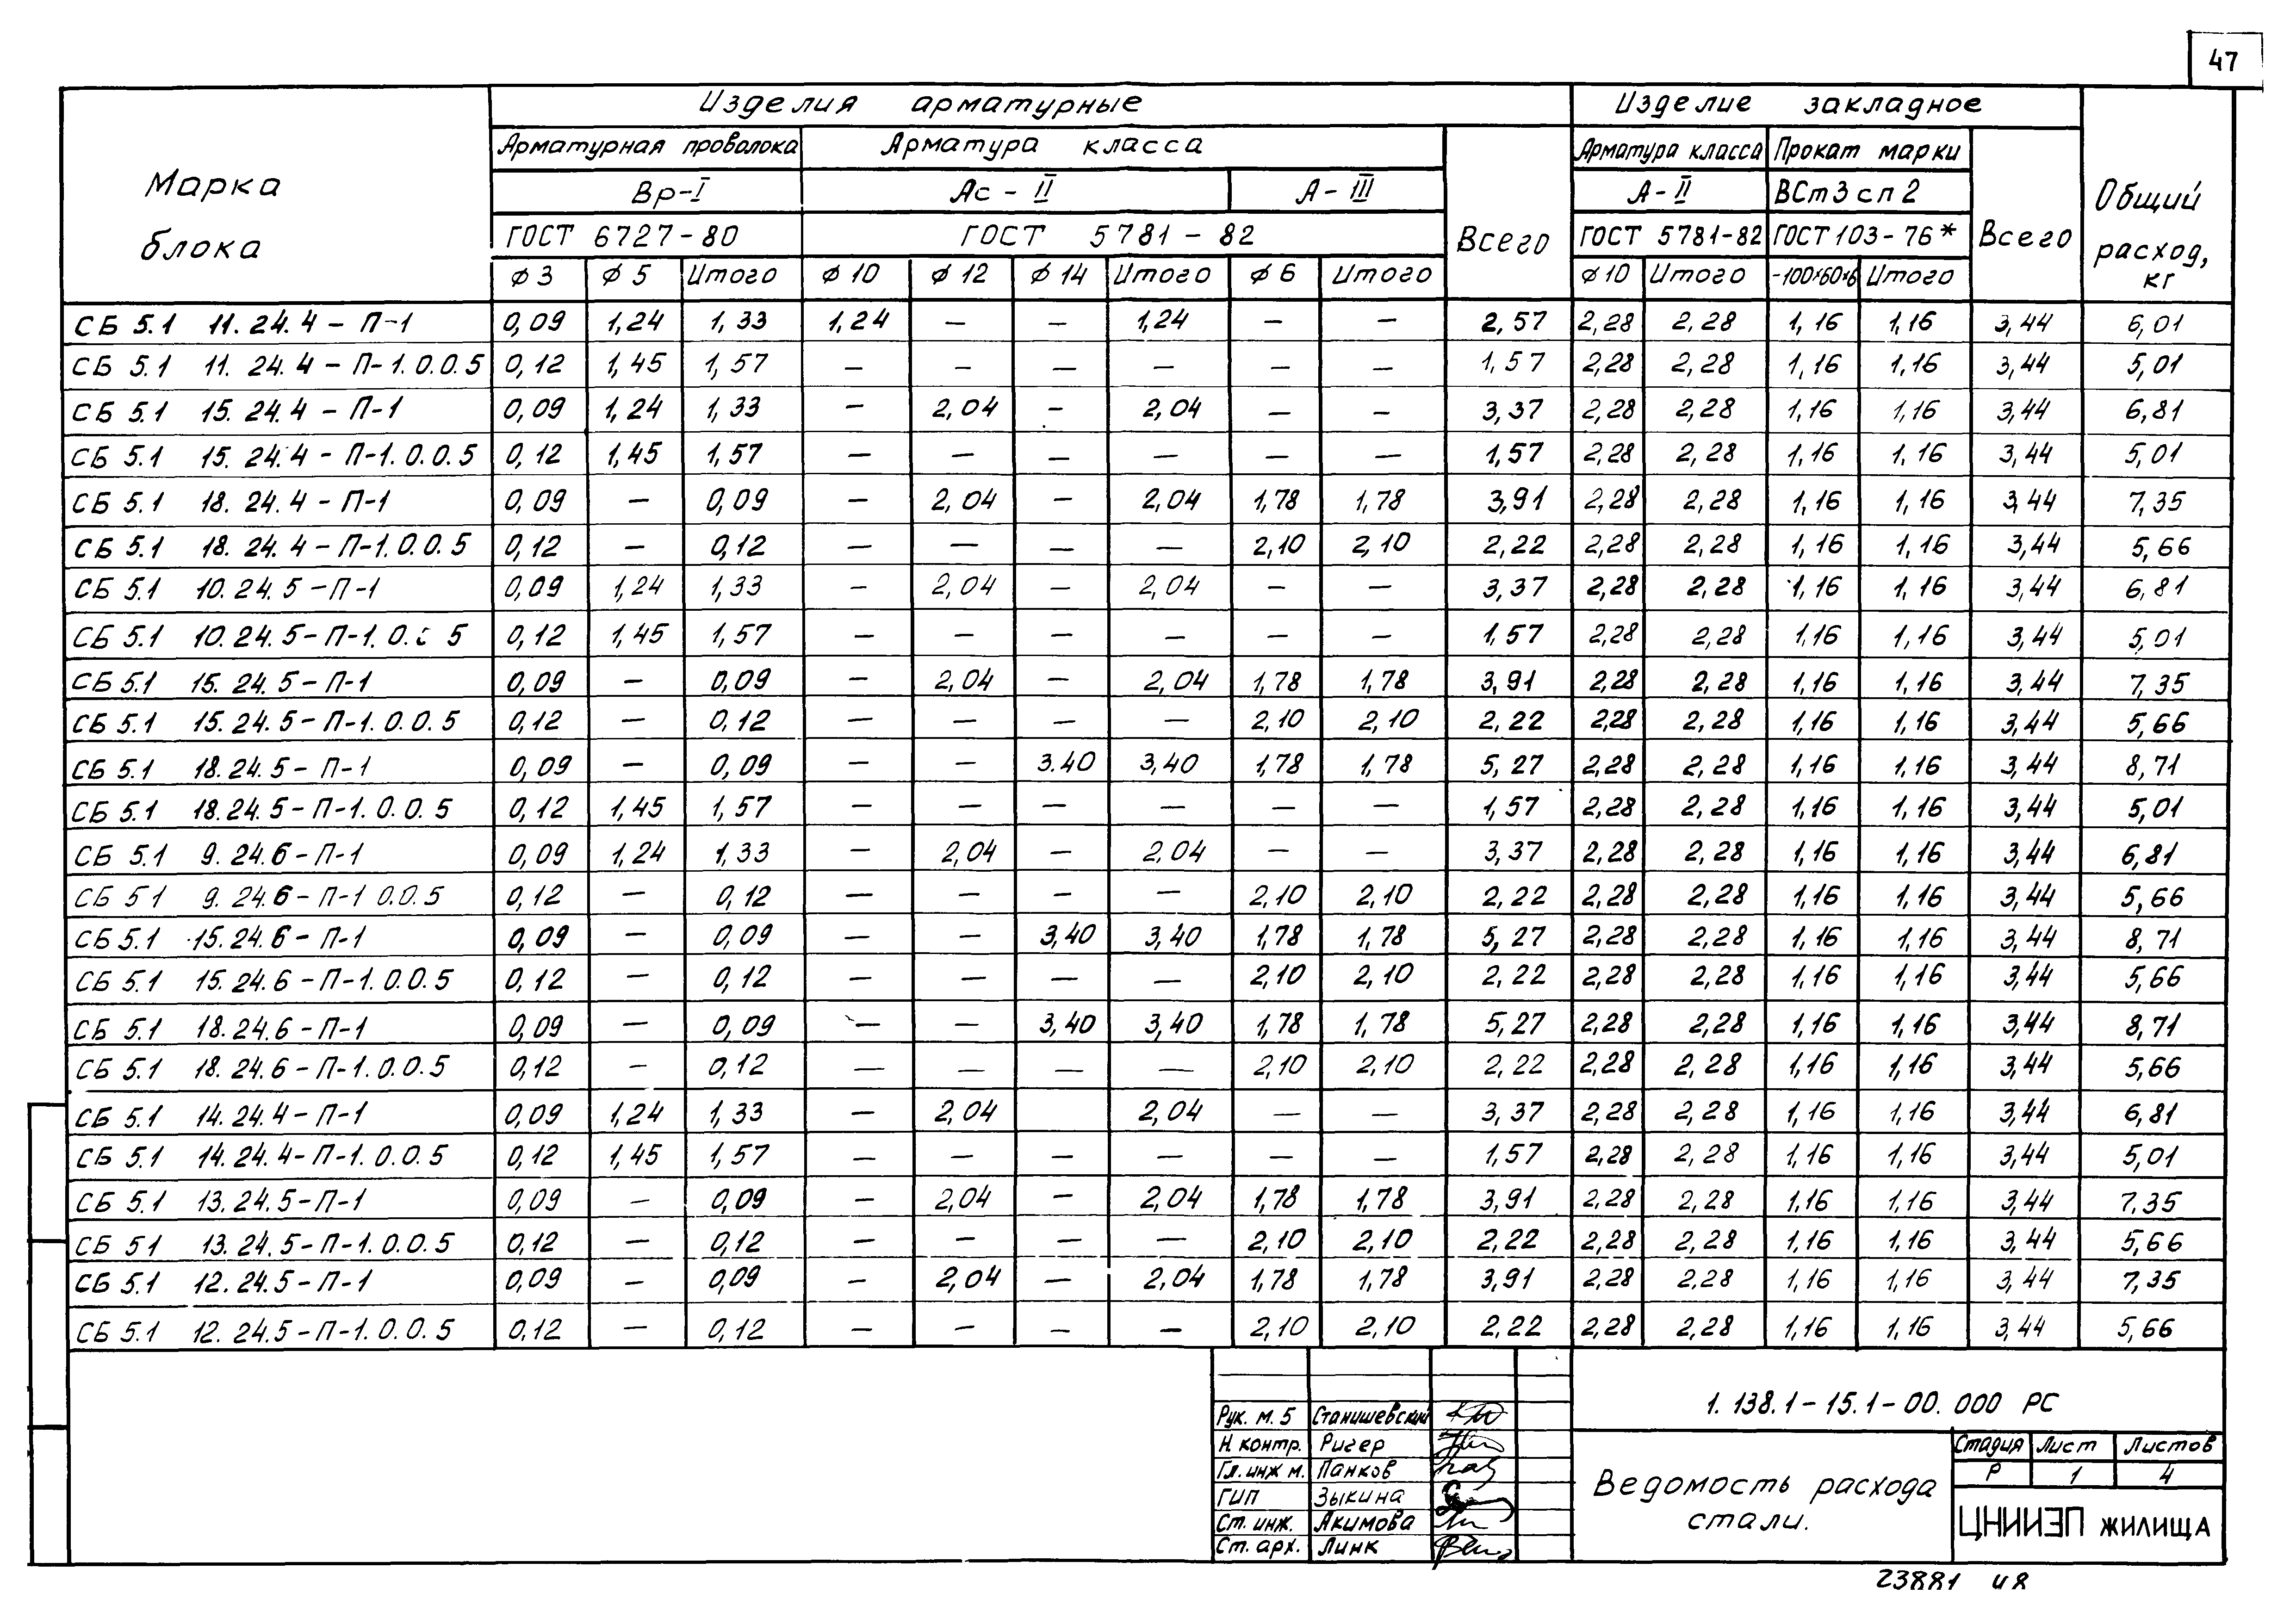 47
Изделия арматурные Изделие закладное
Арматурная проволока Арматура класса Арматура класса Прокат марки
Марка блока Вр-I Ас-II А-III Всего А-II ВСт3сп2 Всего Общий расход, кг
ГОСТ 6727-80 ГОСТ 5781-82 ГОСТ 5781-82 ГОСТ 103-76*
ϕ3 ϕ5 Итого ϕ10 ϕ12 ϕ14 Итого ϕ6 Итого ϕ10 Итого -100×60×6 Итого
СБ 5.1 11.24.4-П-1 0,09 1,24 1,33 1,24 — — 1,24 — — 2,57 2,28 2,28 1,16 1,16 3,44 6,01
СБ 5.1 11.24.4-П-1.0.0.5 0,12 1,45 1,57 — — — — — — 1,57 2,28 2,28 1,16 1,16 3,44 5,01
СБ 5.1 15.24.4-П-1 0,09 1,24 1,33 — 2,04 — 2,04 — — 3,37 2,28 2,28 1,16 1,16 3,44 6,81
СБ 5.1 15.24.4-П-1.0.0.5 0,12 1,45 1,57 — — — — — — 1,57 2,28 2,28 1,16 1,16 3,44 5,01
СБ 5.1 18.24.4-П-1 0,09 — 0,09 — 2,04 — 2,04 1,78 1,78 3,91 2,28 2,28 1,16 1,16 3,44 7,35
СБ 5.1 18.24.4-П-1.0.0.5 0,12 — 0,12 — — — — 2,10 2,10 2,22 2,28 2,28 1,16 1,16 3,44 5,66
СБ 5.1 10.24.5-П-1 0,09 1,24 1,33 — 2,04 — 2,04 — — 3,37 2,28 2,28 1,16 1,16 3,44 6,81
СБ 5.1 10.24.5-П-1.0. 5 0,12 1,45 1,57 — — — — — — 1,57 2,28 2,28 1,16 1,16 3,44 5,01
СБ 5.1 15.24.5-П-1 0,09 — 0,09 — 2,04 — 2,04 1,78 1,78 3,91 2,28 2,28 1,16 1,16 3,44 7,35
СБ 5.1 15.24.5-П-1.0.0.5 0,12 — 0,12 — — — — 2,10 2,10 2,22 2,28 2,28 1,16 1,16 3,44 5,66
СБ 5.1 18.24.5-П-1 0,09 — 0,09 — — 3.40 3,40 1,78 1,78 5,27 2,28 2,28 1,16 1,16 3,44 8,71
СБ 5.1 18.24.5-П-1.0.0.5 0,12 1,45 1,57 — — — — — — 1,57 2,28 2,28 1,16 1,16 3,44 5,01
СБ 5.1 9.24.6-П-1 0,09 1,24 1,33 — 2,04 — 2,04 — — 3,37 2,28 2,28 1,16 1,16 3,44 6,81
СБ 5 1 9.24.6-П-1 0.0.5 0,12 — 0,12 — — — — 2,10 2,10 2,22 2,28 2,28 1,16 1,16 3,44 5,66
СБ 5.1 15.24.6-П-1 0,09 — 0,09 — — 3,40 3,40 1,78 1,78 5,27 2,28 2,28 1,16 1,16 3,44 8,71
СБ 5.1 15.24.6-П-1.0.0.5 0,12 — 0,12 — — — — 2,10 2,10 2,22 2,28 2,28 1,16 1,16 3,44 5,66
СБ 5.1 18.24.6-П-1 0,09 — 0,09 — — 3,40 3,40 1,78 1,78 5,27 2,28 2,28 1,16 1,16 3,44 8,71
СБ 5.1 18.24.6-П-1.0.0.5 0,12 — 0,12 — — — — 2,10 2,10 2,22 2,28 2,28 1,16 1,16 3,44 5,66
СБ 5.1 14.24.4-П-1 0,09 1,24 1,33 — 2,04 2,04 — — 3,37 2,28 2,28 1,16 1,16 3,44 6,81
СБ 5.1 14.24.4-П-1.0.0.5 0,12 1,45 1,57 — — — — — — 1,57 2,28 2,28 1,16 1,16 3,44 5,01
СБ 5.1 13.24.5-П-1 0,09 — 0,09 — 2,04 — 2,04 1,78 1,78 3,91 2,28 2,28 1,16 1,16 3,44 7,35
СБ 5 1 13.24.5-П-1.0.0.5 0,12 — 0,12 — — — — 2,10 2,10 2,22 2,28 2,28 1,16 1,16 3,44 5,66
СБ 5.1 12.24.5-П-1 0,09 — 0,09 — 2,04 — 2,04 1,78 1,78 3,91 2,28 2,28 1,16 1,16 3,44 7,35
СБ 5.1 12.24.5-П-1.0.0.5 0,12 — 0,12 — — — — 2,10 2,10 2,22 2,28 2,28 1,16 1,16 3,44 5,66
1.138.1-15.1-00.000 РС
Рук. м. 5 Станишевский
Н. контр. Ригер
Гл. инж м. Панков
ГИП Зыкина
Ст. инж. Акимова
Ст. арх. Линк
Ведомость расхода
стали.
Стадия Лист Листов
Р 1 4
ЦНИИЭП ЖИЛИЩА
23881 48